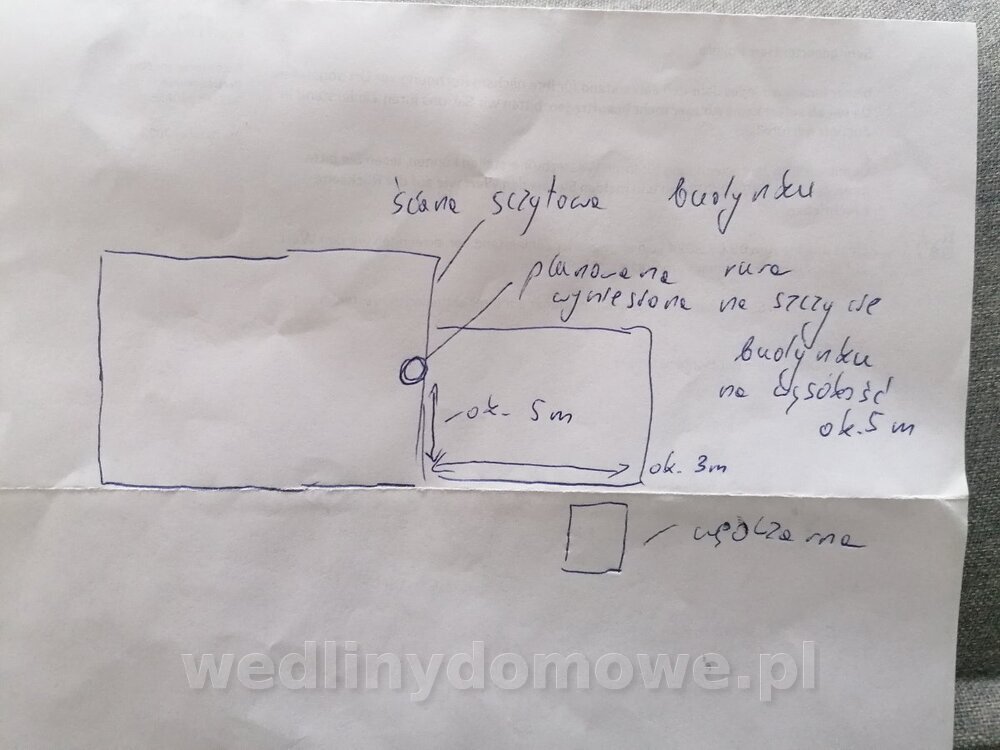 ściana sczytowa budynku
planowana rura
wyniesiona na szczycie
budynku
na wysokość
ok. 5 m
ok. 5 m
ok. 3m
wędzarna
wedlinydomowe.pl